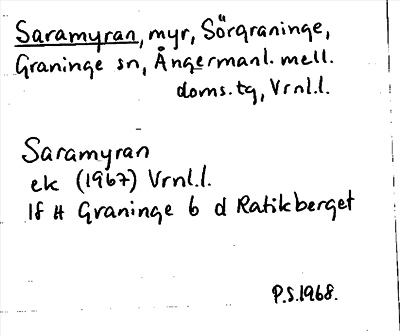 Saramyran, myr, Sörgraninge,
Graninge sn, Ångermanl. mell.
doms. tg, Vrnl.l.
Saramyran
ek (1967) Vrnl.l.
If H Graninge 6 d Ratikberget
P.S.1968.